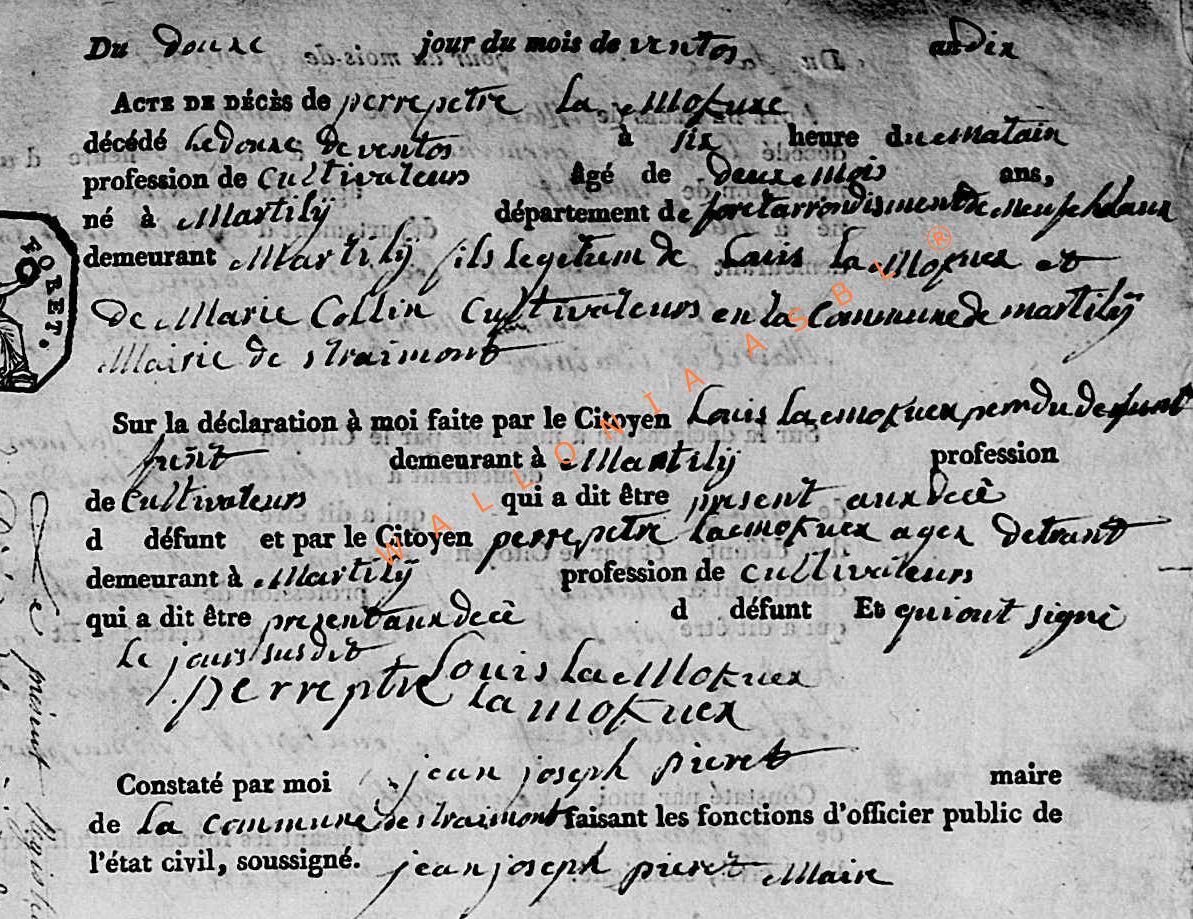 Du douxe jour du mois de ventos an dix
ACTE DE DÉCÈS de perrepetre La Mokuxe
décédé Le douxe de ventos à six heure du matain
profession de Cultivateurs âgé de deux Mois ans,
né à Martilÿ département de foret arrondisment de Neufchdaux
demeurant Martilÿ fils legitum de Louis la Mokuex et
de Marie Collin Cultivateurs en la Commune de martilÿ
Mairie de straimont
Sur la déclaration à moi faite par le Citoyen Louis la mokuex du defunt
demeurant à Martilÿ profession
de Cultivateurs qui a dit être present aux decè
d défunt et par le Citoyen perrepetre la mokuex agex detrant
demeurant à Martilÿ profession de cultivateurs
qui a dit être present aux decè d défunt Et qui ont signè
Le jours susdit
Louis La Mokuex
perreptre la mokuex
Constaté par moi jean joseph pieret maire
de La commune de straimont faisant les fonctions d'officier public de
l'état civil, soussigné. jean joseph pieret Maire
FORET.
WALLONIA ASBL ®